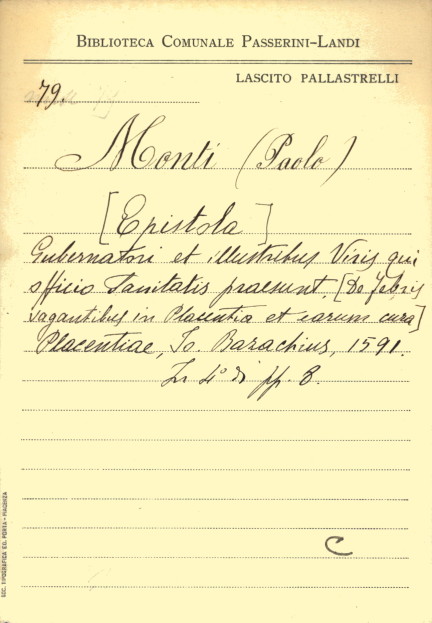 BIBLIOTECA COMUNALE PASSERINI-LANDI
LASCITO PALLASTRELLI
79.
Monti (Paolo)
[Epistola]
Gubernatori et illustribus Viris qui
officio Sanitatis praesunt. [De febris
vagantibus in Placentia et earum cura]
Placentiae, Io. Barachius, 1591.
In 4° di pp. 8.
C
SOC. TIPOGRAFICA ED. PORTA - PIACENZA